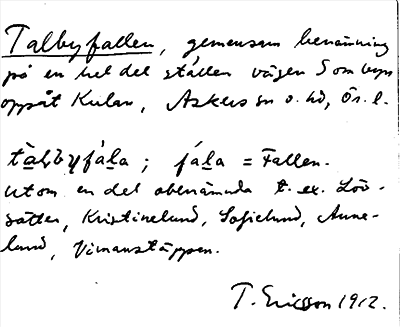 Talbyfallen, gemensam benämning
på en hel del ställen vägen Som byn
uppåt Kulan, Askers sn o. hd, Ör. l.
tàl̠byfál̠a; fál̠a = Fallen.
utom en del obenämnda t. ex. Löv-
sätter, Kristinelund, Sofielund, Anne-
lund, Vimanstäppen.
T. Ericsson 1912.